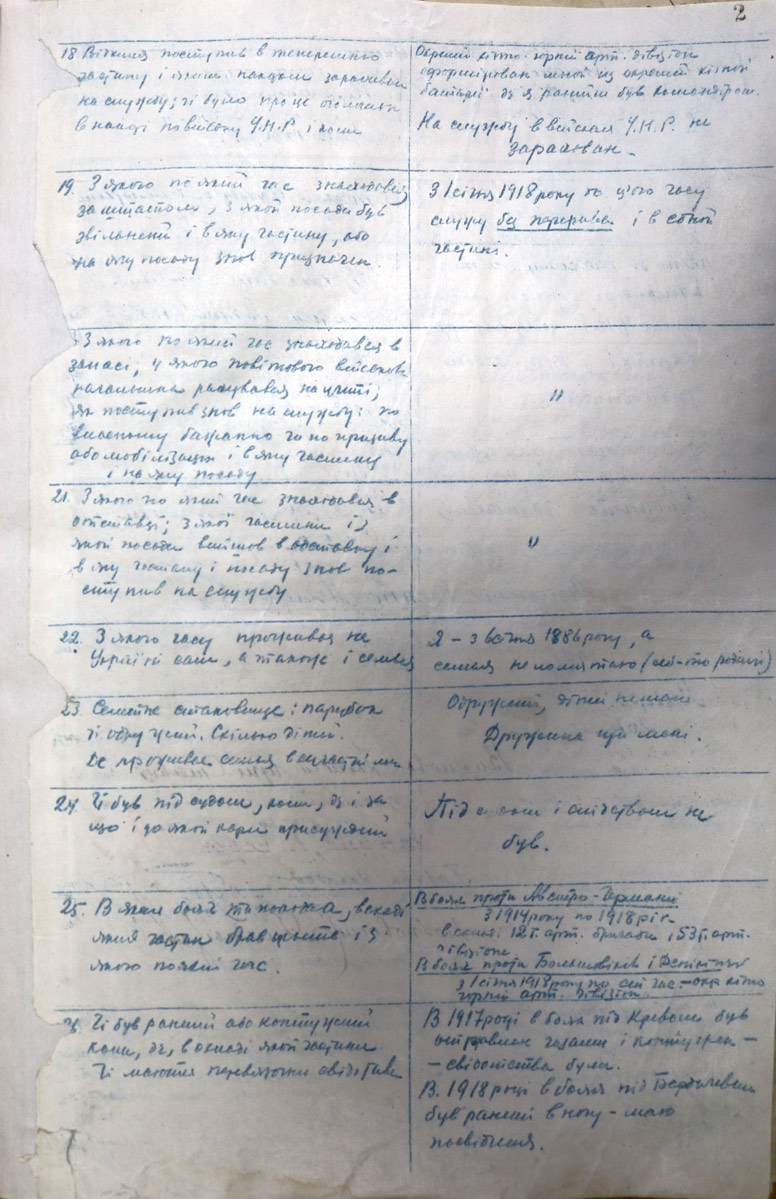 2
18 Відкиля поступив в теперешню
частину і яким наказом зарахован
на службу; чі було про це оголошен
в наказі по війську У.Н.Р. і коли
Окремий кінно-горний арт. дівізіон
сформірован мною из окремой кінной
батареї де я раніш був командіром.
На службу в війська У.Н.Р. не
зарахован.
19. З якого по який час знаходився
за штатом, з якой посади був
звільнений і в яку частину, або
на яку посаду знов призначен.
З 1 січня 1918 року по цього часу
служу без перерива і в одной
частині.
З якого по який час знаходився в
запасі, у якого повітового військов.
начальника рахувався на учеті;
як поступив знов на службу: по
власному бажанню чи по призиву
або мобілізаціи і в яку частину
і на яку посаду
"
21. З якого по який час знаходився в
отставці; з якої частини і з
якой посади вийшов в отставку і
в яку частину і посаду знов по-
ступив на службу
"
22. З якого часу проживав на
Україні сам, а також і семья
Я – з квітня 1886 року, а
семья не
23. Семейне становище: парубок
чі одружений. Скілько дітей.
Де проживає семья в
Одружений, дітей не маю
Дружина при мені.
24. Чі був під судом, коли, де і за
що і до якой кари присужден
Під судом і слідством не
був.
25. В яких боях та походах, в складі
яких частин брав участь і з
якого по який час.
В боях проти Австро-Германії
з 1914 року по 1918 рік –
в складі 12 г. арт. бригади і 53 г. арт.
дівізіона
В боях проти Большовиків і Денікінців
з 1 січня 1918 року по сей час – окр. кінно
горний арт. дівізіон.
26. Чі був раненій або контуженій
коли, де, в складі якой частини
Чі маються перевязочни свідотства
В 1917 році в боях під Кревом був
отравлен газами і контужен –
– свідотства були.
В 1918 році в боях під Бердичевом
був раненій в ногу – маю
посвідчення.